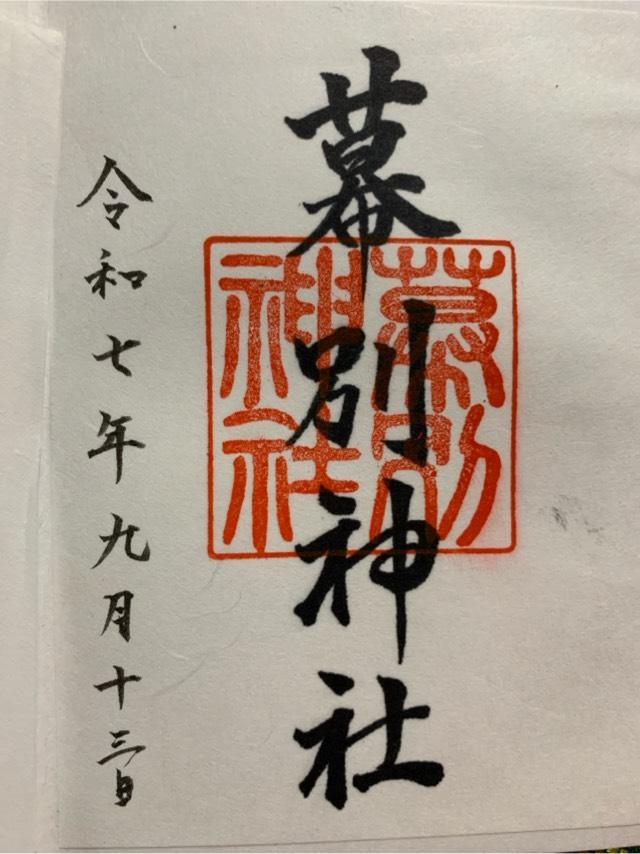 幕別神社
幕別
神社
令和七年九月十三日